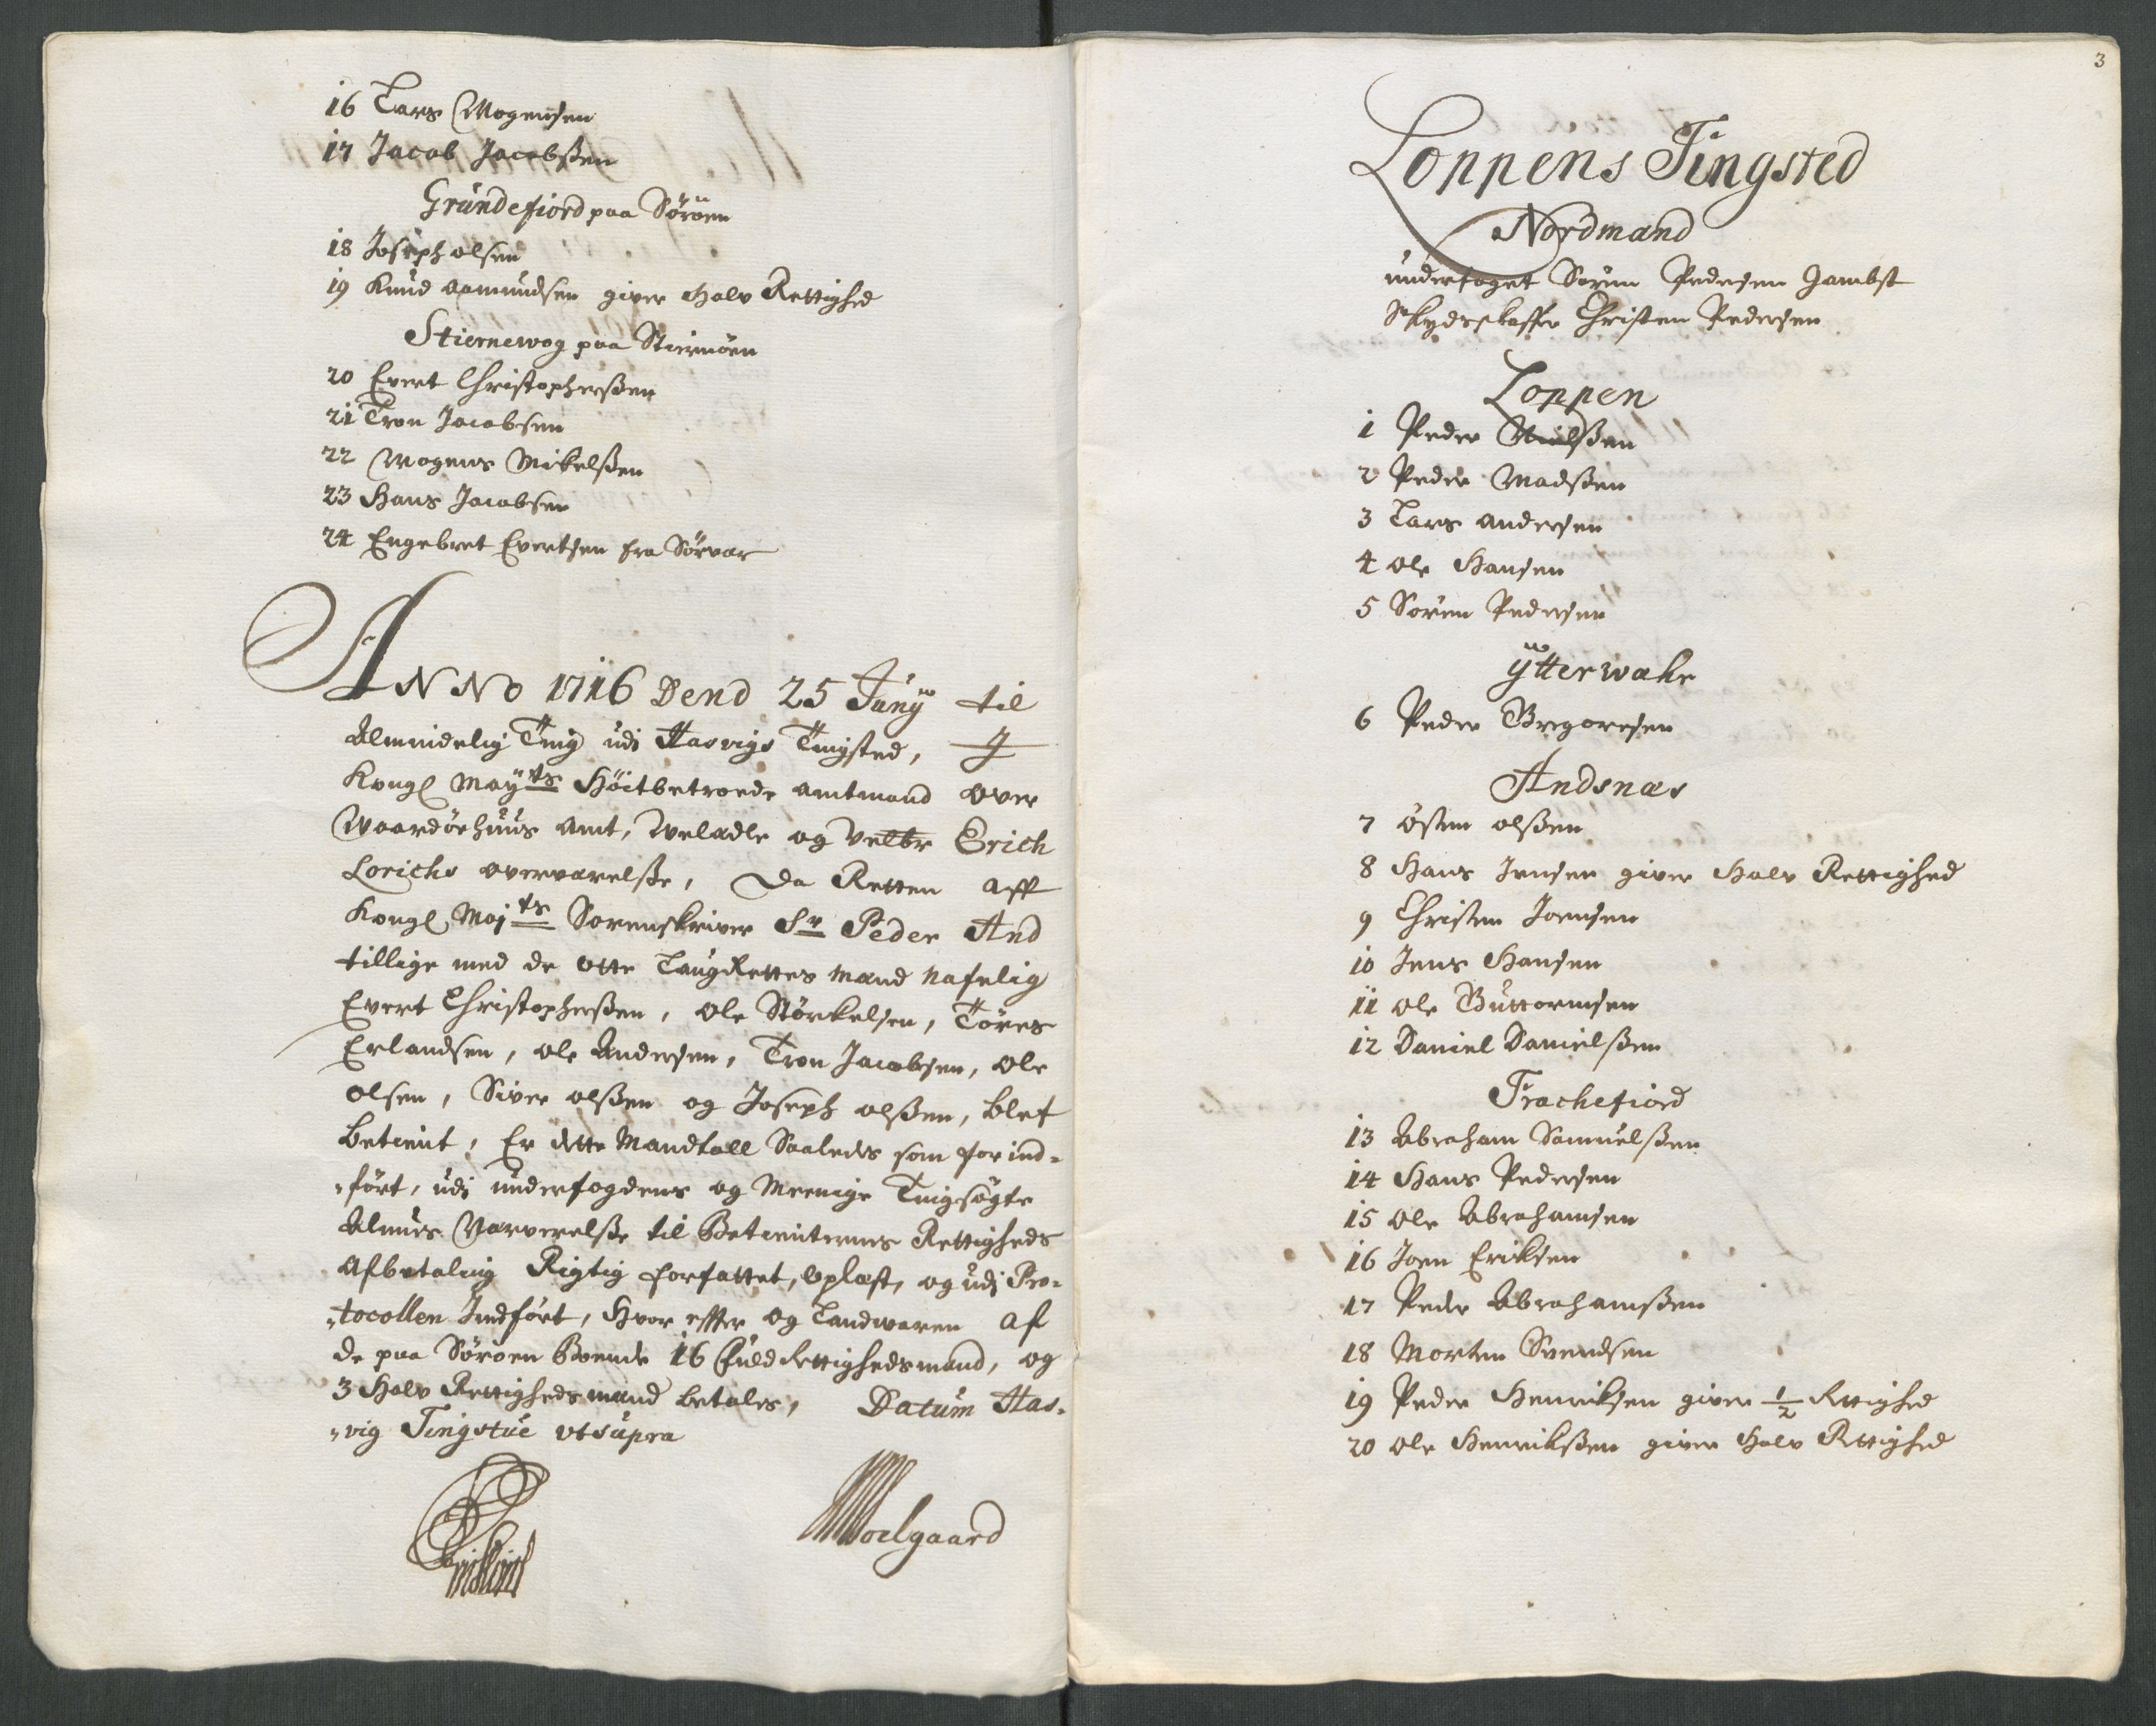 16 Lars Mogensen
17 Jacob Jacobsßen
Grundefiord paa Sørøen
18 Joseph olsen
19 Knud Aamundsen giver Halv Rettighed
Stiernewog paa Stiernøen
20 Evert Christophersßen
21 Tron Jacobsen
22 Mogens Mikelsßen
23 Hans Jacobsen
24 Engebret Evertsen fra Sørvær
ANNO 1716 Dend 25 Junÿ til
Almindelig Ting udi Hasvigs Tingsted, J
Kongl Maÿts Høitbetroede amtmand over
Waardøehuus Amt, Weladle og Velbr Erich
Lorichs overværelsße, Da Retten Aff
Kongl Majts Sorenskriver Sr Peder And
tillige med de otte LaugRettes Mænd Nafnlig
Evert Christophersßen, Ole Størkelsen, Töres
Erlandsen, ole Andersen, Tron Jacobsen, Ole
olsen, Siver olsßen og Joseph olsßen, blef
betient, Er dette Mandtall Saaledes som for ind-
-ført, udi underfogdens og Meenige Tingsøgte
Almues Nærverelsße til Betienternes Rettigheds
Afbetaling Rigtig forfattet, Oplæst, og udj Pro-
-tocollen Indført, Hvor effter og Landwaren af
de paa Sørøen Boende 16 Fuld Rettighedsmænd, og
3 Halv Rettighedsmænd betales, Datum Has-
-vig Tingstue ut supra
Woelgaard
3
Loppens Tingsted
Nordmænd
underfoget Søren Pedersen Gambst
Skydsskaffer Christen Pedersen
Loppen
1 Peder Nielsßen
2 Peder Madsßen
3 Lars Andersen
4 Ole Hansen
5 Søren Pedersen
ÿtterwæhr
6 Peder Bregoresen
Andsnæs
7 Østen olsßen
8 Hans Jensen giver Halv Rettighed
9 Christen Joensen
10 Jens Hansen
11 Ole Guttormsen
12 Daniel Danielsßen
Frachefiord
13 Abraham Samuelsßen
14 Hans Pedersen
15 Ole Abrahamsen
16 Joen Eriksen
17 Peder Abrahamsßen
18 Morten Svendsen
19 Peder Henriksen giver 1/2 Rettighed
20 Ole Henriksßen giver Halv Rettighed